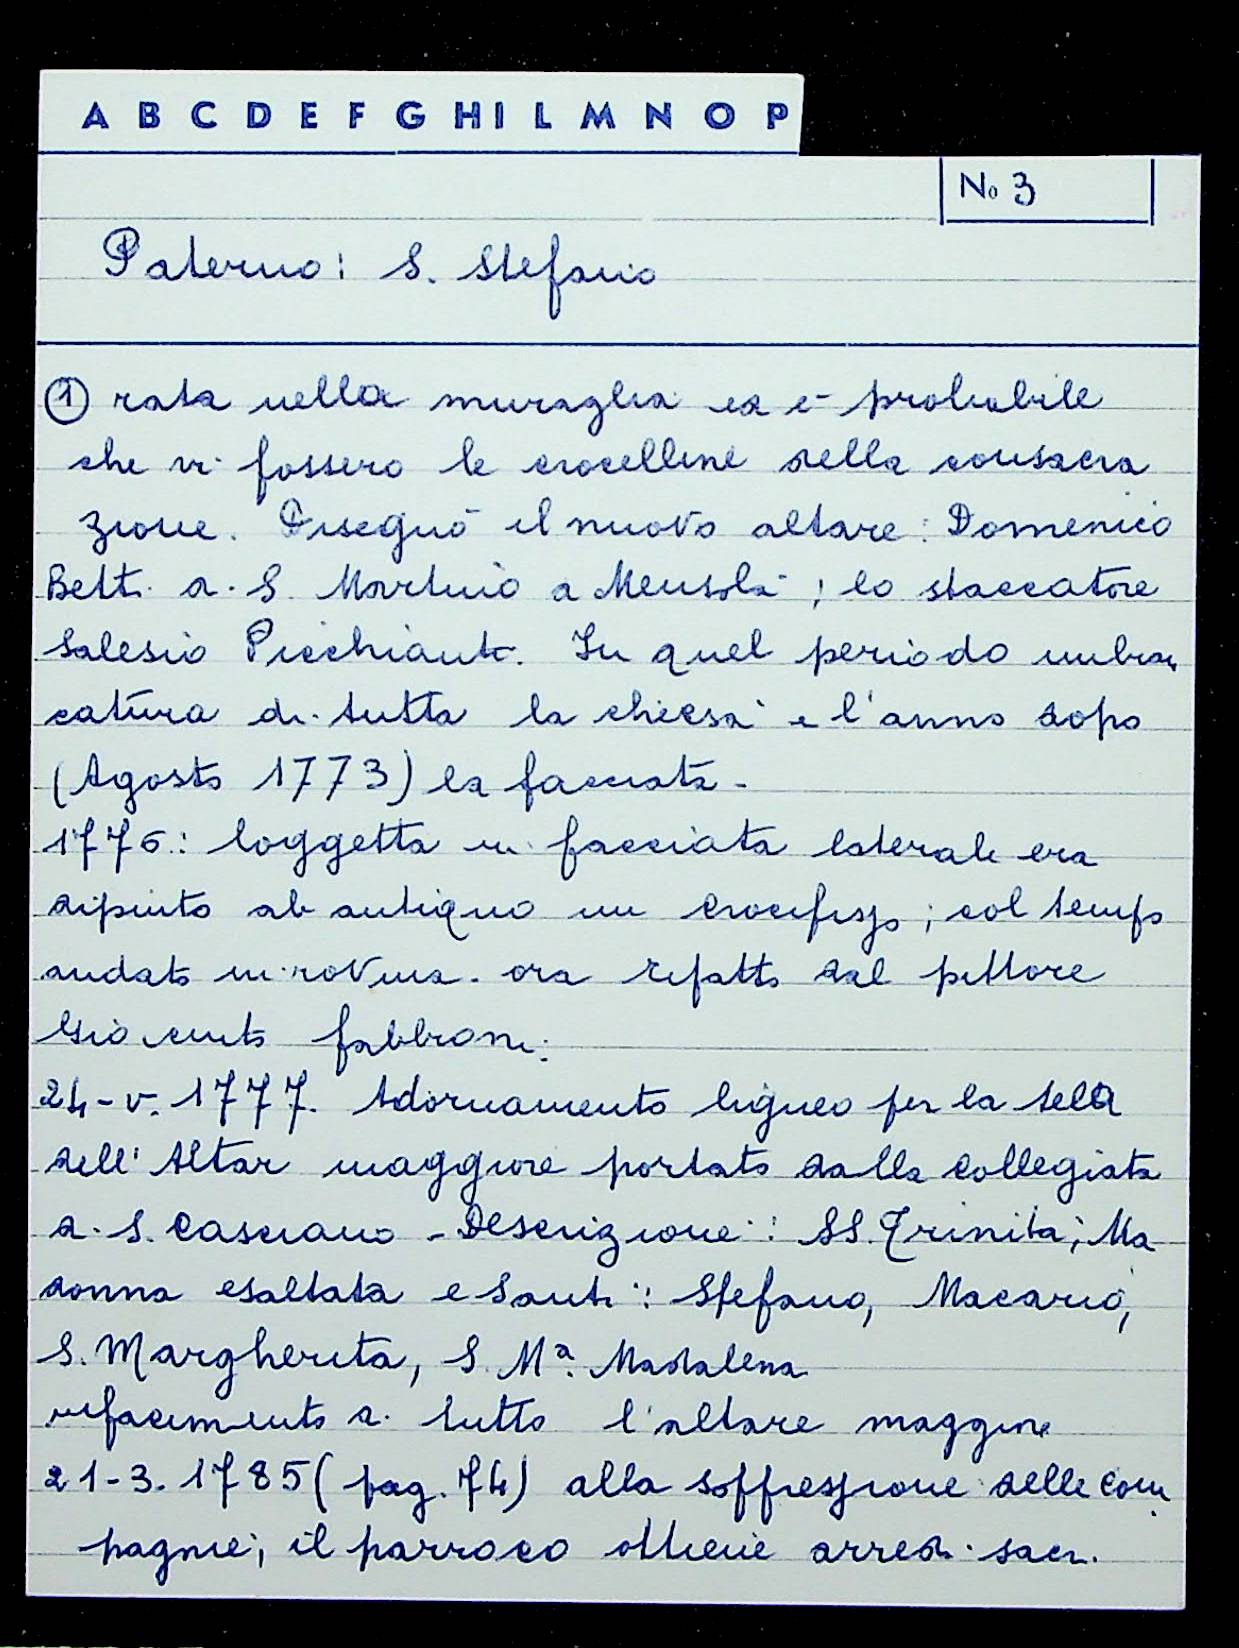 A B C D E F G H I L M N O P
No 3
Paterno: S. Stefano
① rata nella muraglia ed è probabile
che vi fossero le crocelline della consacra
zione. Disegnò il nuovo altare: Domenico
Betti di S. Martino a Mensola; lo staccatore
Salesio Picchianti. In quel periodo imbian
catura di tutta la chiesa e l'anno dopo
(Agosto 1773) la facciata -
1776: loggetta in facciata laterale era
dipinto ab antiquo un Crocifisso; col tempo
andato in rovina. ora rifatto dal pittore
Giacinto Fabbroni.
24-V. 1777. Adornamento ligneo per la tela
dell'Altar maggiore portato dalla Collegiata
di S. Casciano - Descrizione: SS. Trinità; Ma
donna esaltata e Santi: Stefano, Macario,
S. Margherita, S. Mª. Maddalena
rifacimento di tutto l'altare maggiore
21-3. 1785 (pag. 74) alla soppressione delle com
pagnie, il parroco ottiene arredi sacri.